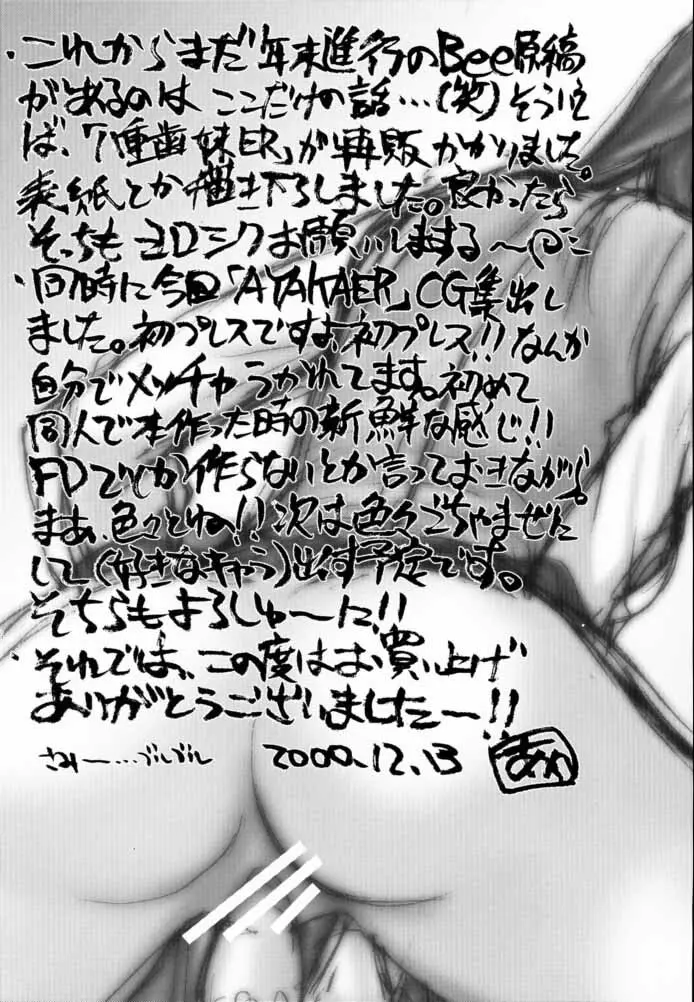 ・これからまだ年末進行のBee原稿
があるのは ここだけの話…(笑)そういえ
ば、「ER」が再販かかりました。
表紙とか描き下ろしました。良かったら
そっちもヨロシクお願いしまする〜
・同時に今回「AYAKAER」CG集出し
ました。初プレスですよ、初プレス!!なんか
自分でメッチャうかれてます。初めて
同人で本作った時の新鮮な感じ!!
FDでしか作らないとか言っておきながら。
まあ、色々とね!!次は色々ごちゃまぜに
して(好きなキャラ)出す予定です。
そちらもよろしゅ〜に!!
・それでは、この度はお買い上げ
ありがとうございました〜!!
さみー…ブルブル 2000.12.13